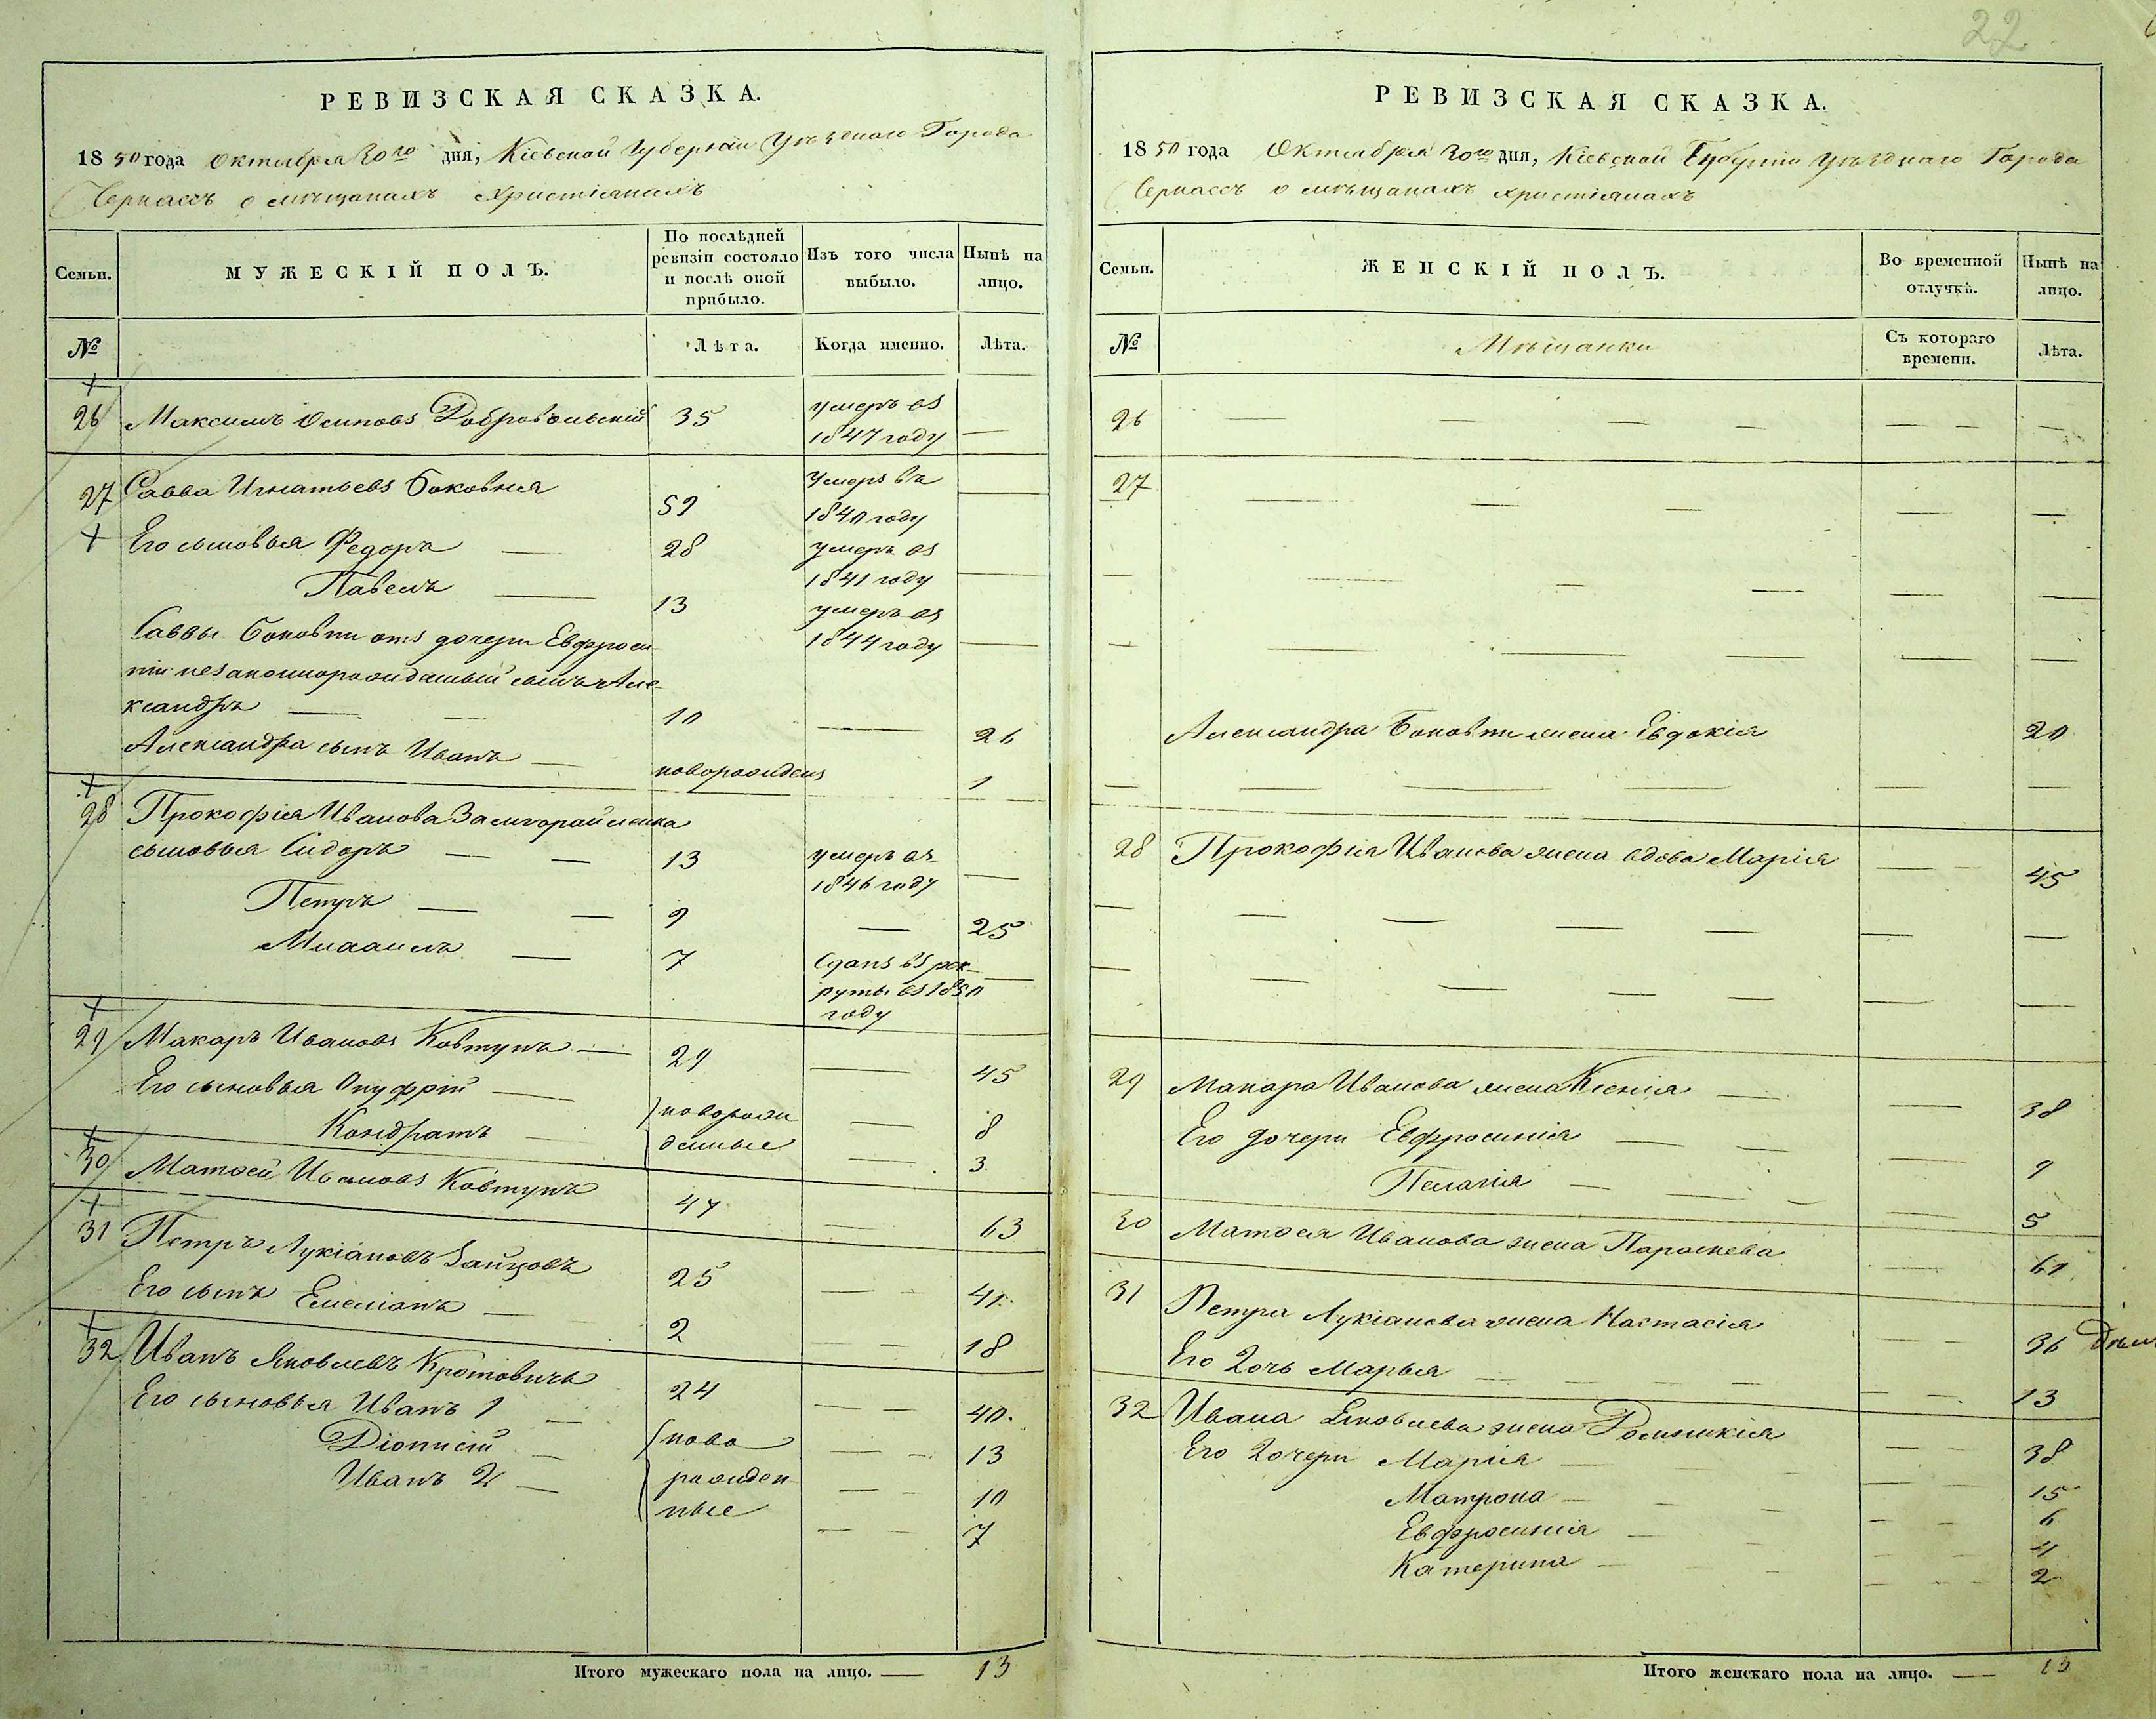 22
РЕВИЗСКАЯ СКАЗКА.
1850 года Октября 30го дня, Кіевской Губерніи Уѣзднаго Города
Черкассъ о мѣщанахъ христіянахъ
Семьи.
МУЖЕСКІЙ ПОЛЪ.
По послѣдней
ревизіи состояло
и послѣ оной
прибыло.
Изъ того числа
выбыло.
Нынѣ на
лицо.
№
Лѣта.
Когда именно.
Лѣта.
26 Максимъ Осиповъ Добровольскій 35 умеръ въ
1847 году —
27 Савва Игнатьевъ Боковня 59 Умеръ въ
1840 году —
Его сыновья Федоръ — 28 умеръ въ
1841 году —
Павелъ — 13 умеръ въ
1844 году —
Саввы Боковни отъ дочери Евфроси-
ніи незаконнорожденный сынъ Але-
ксандръ — — 10 — 26
Александра сынъ Иванъ — новорожденъ 1
28 Прокофія Иванова Замгорайленка
сыновья Сидоръ — — 13 умеръ въ
1846 году —
Петръ — — 9 — 25
Михаилъ — 7 Сданъ въ рек-
руты въ 1850 —
году
29 Макаръ Ивановъ Ковтунъ — 29 — 45
Его сыновья Онуфрій — новорож — 8
Кондратъ — денные — 3
30 Матвей Ивановъ Ковтунъ 47 — 63
31 Петръ Лукіановъ Зайцовъ 25 — — 41
Его сынъ Емеліанъ — 2 — — 18
32 Иванъ Яковлевъ Кротовичъ 24 — — 40
Его сыновья Иванъ 1 — ново — — 13
Діонисій — рожден — — 10
Иванъ 2 — ные — — 7
Итого мужескаго пола на лицо. — 13
РЕВИЗСКАЯ СКАЗКА.
1850 года Октября 30го дня, Кіевской Губерніи Уѣзднаго Города
Черкассъ о мѣщанахъ христіянахъ
Семьи.
ЖЕНСКІЙ ПОЛЪ.
Во временной
отлучкѣ.
Нынѣ на
лицо.
№
Мѣщанки
Съ котораго
времени.
Лѣта.
26 — — — — — — — —
27 — — — — —
Александра Боковни жена Евдокія 20
28 Прокофія Иванова жена вдова Марія — — 45
29 Макара Иванова жена Ксенія — — 38
Его дочери Евфросинія — — — 9
Пелагія — — — — 5
30 Матвея Иванова жена Параскева — 61
31 Петра Лукіанова жена Настасія — — 36
Его дочь Марья — — — — 13
32 Ивана Яковлева жена Домникія — — 38
Его дочери Марія — 15
Матрона — — — 6
Евфросинія — 4
Катерина — — 2
Итого женскаго пола на лицо. — 13